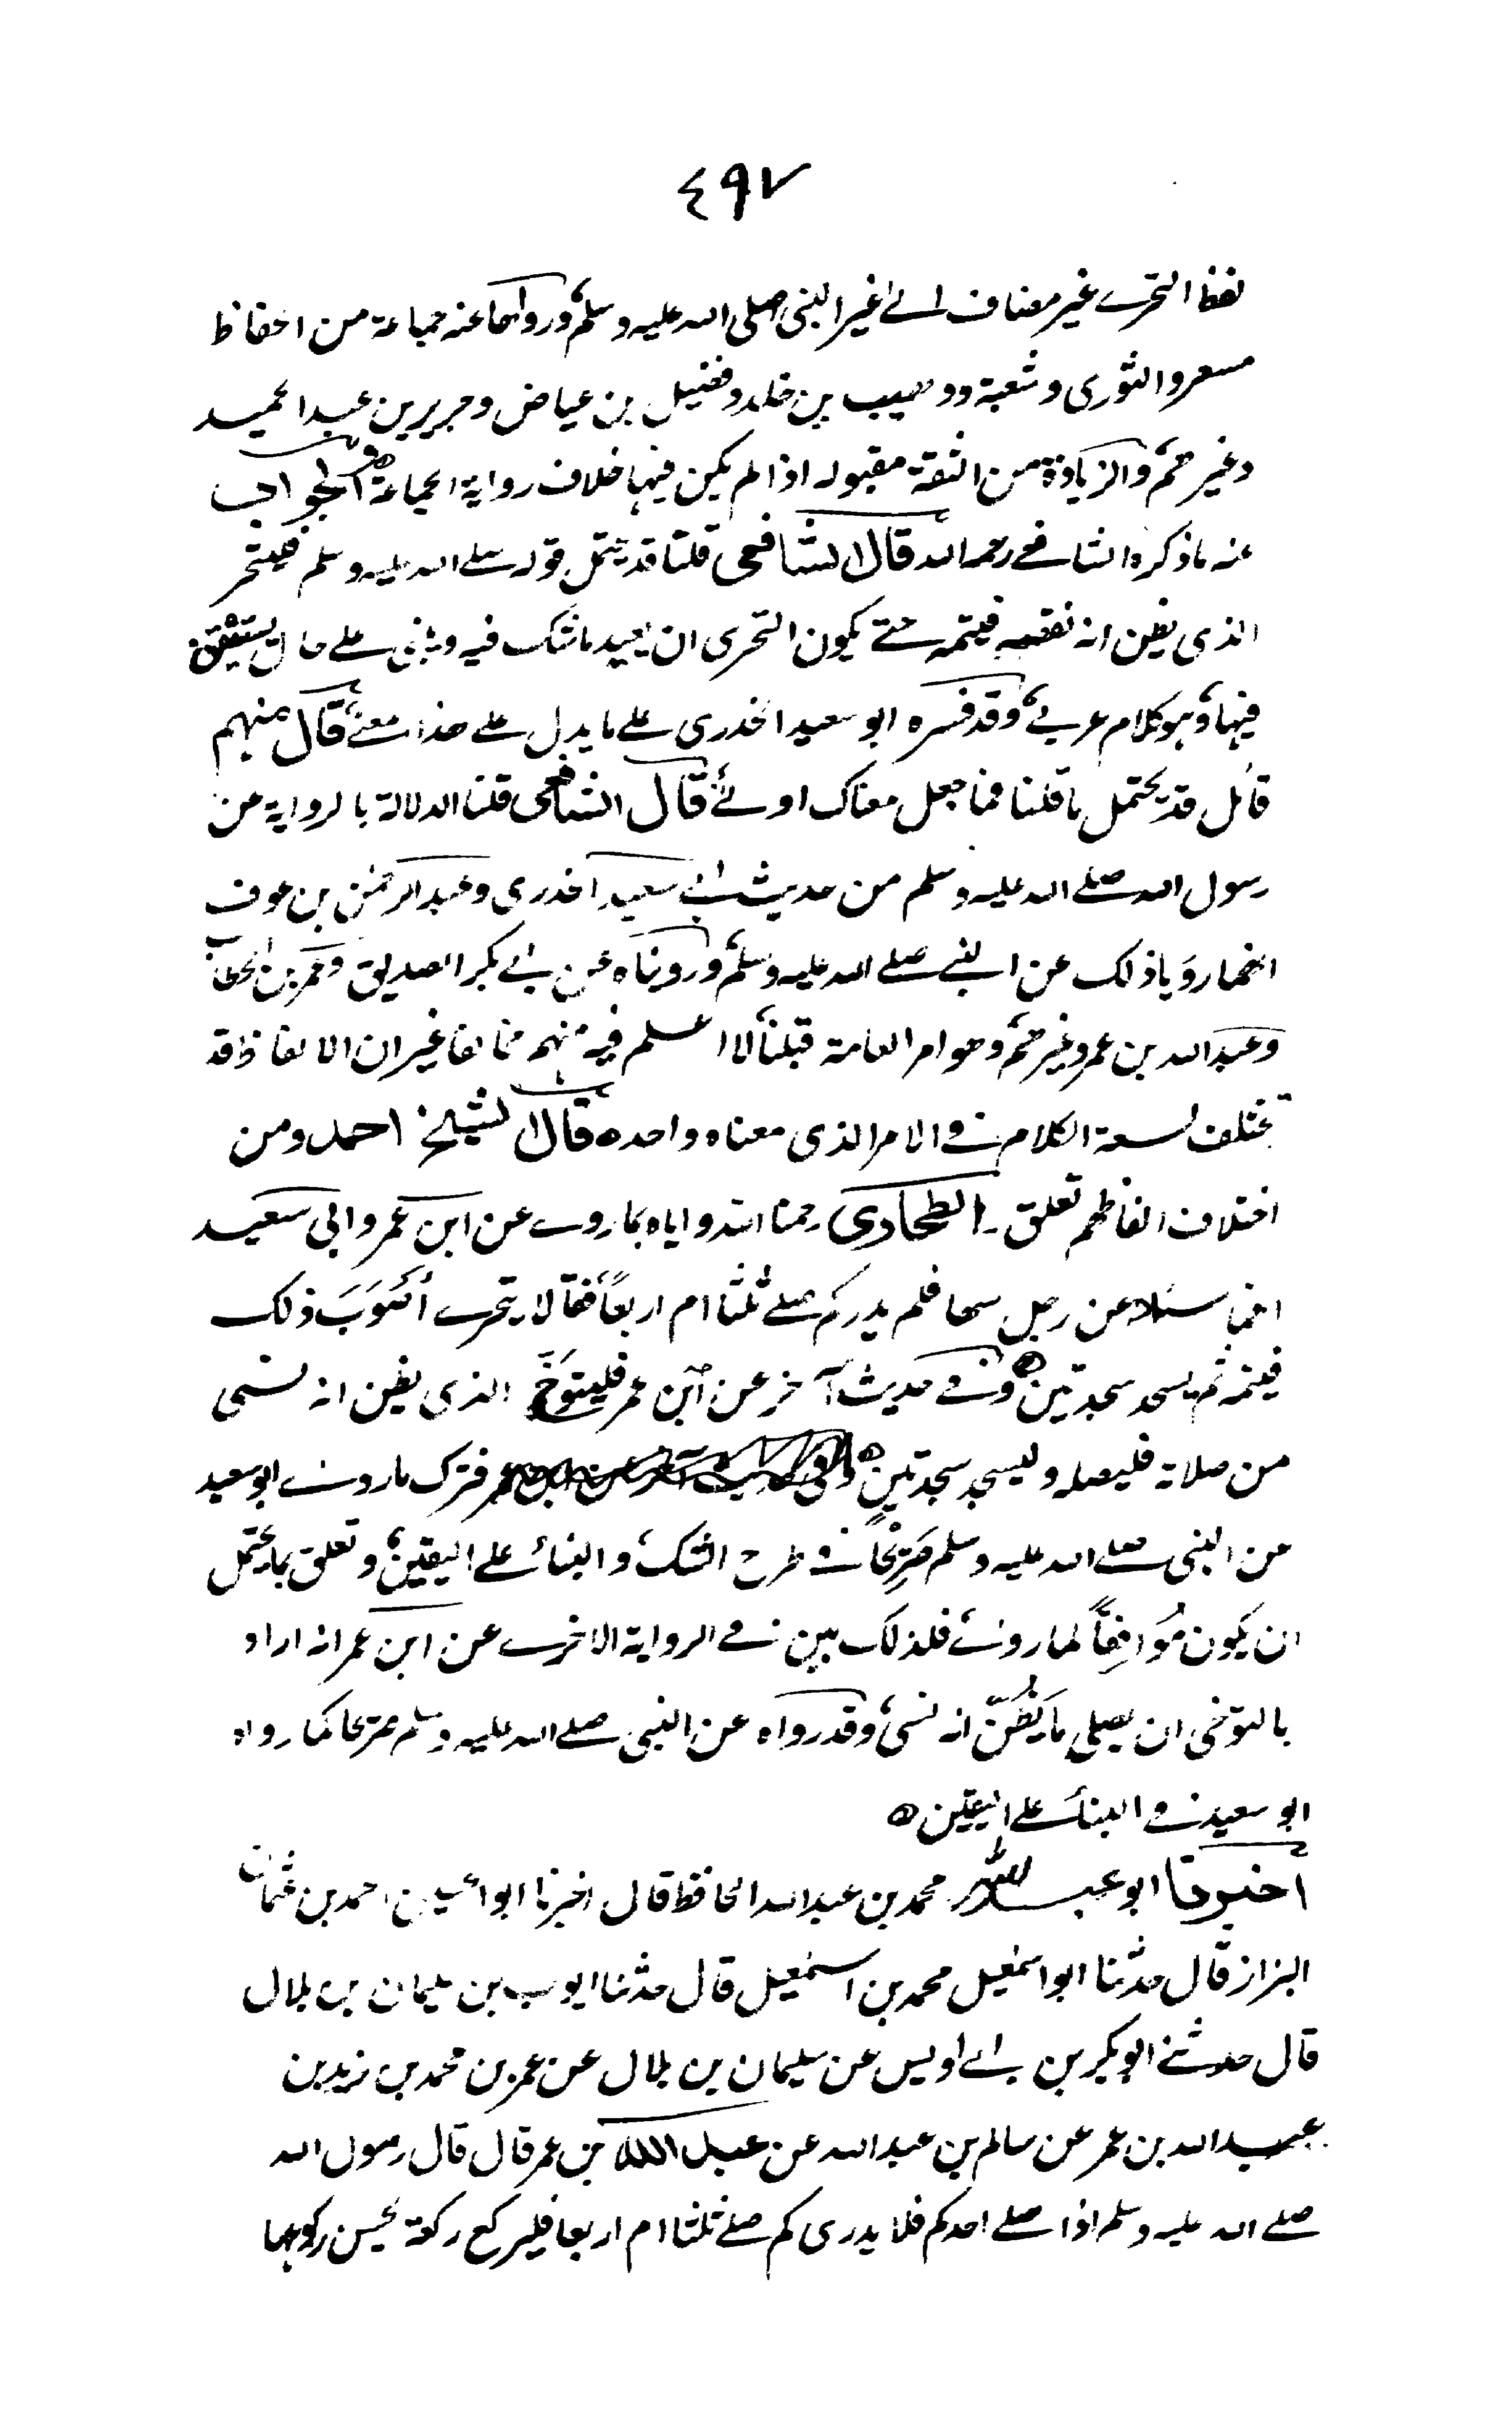 ٤٩٧
لفظ التحرى غير مضاف الى غير النبى صلى الله عليه وسلم ورواها عنه جماعة من الحفاظ
مسعر والثورى وشعبة ووهيب بن خالد وفضيل بن عياض وجرير بن عبد الحميد
وغيرهم والزيادة من الثقة مقبوله اذا لم يكن فيها خلاف رواية الجماعة الجواب
عنه ما ذكره الشافعى رحمه الله قال الشافعى قلنا قد يحتمل قوله صلى الله عليه وسلم فليتحر
الذى يظن انه نقصه فيتمه حتى يكون التحرى ان يعيد ما شك فيه ويبنى على حال يستيقن
فيها وهو كلام عربى وقد فسره ابو سعيد الخدرى على ما يدل على هذا معنى قال منهم
قائل قد يحتمل ما قلنا فما جعل معناك اولى قال الشافعى قلنا الدلالة بالرواية عن
رسول الله صلى الله عليه وسلم من حديث ابى سعيد الخدرى وعبد الرحمن بن عوف
انهما رويا ذلك عن النبى صلى الله عليه وسلم ورويناه عن ابى بكر الصديق وعمر بن الخطاب
وعبد الله بن عمر وغيرهم وهو امر العامة قبلنا لا اعلم فيه منهم مخالفا غير ان الالفاظ قد
تختلف لسعة الكلام فى الامر الذى معناه واحد ه قال الشيخ احمد ومن
اختلاف الفاظهم تعلق الطحاوى رحمنا الله واياه بما روى عن ابن عمر وابى سعيد
انهما سئلا عن رجل سها فلم يدر كم صلى ثلثا ام اربعاً فقالا يتحرى أصْوَبَ ذلك
فيتمه ثم يسجد سجدتين ه وفى حديث آخر عن ابن عمر فليتوخَّ الذى يظن انه نسى
من صلاة فليصله وليسجد سجدتين ه فترك ما روى ابو سعيد
من النبى صلى الله عليه وسلم صَرِيحًا فى طرح الشك والبناء على اليقين وتعلق بما يحتمل
ان يكون مُوَافِقاً لما روى فلذلك بين فى الرواية الاخرى عن ابن عمر انه اراد
بالتوخى ان يصلى ما يَظُنّ انه نسى وقد رواه عن النبى صلى الله عليه وسلم صريحا كما رواه
ابو سعيد فى البناء على اليقين ه
اخبرنا ابو عبد الله محمد بن عبد الله الحافظ قال اخبرنا ابو الحسين احمد بن عثمان
البزاز قال حدثنا ابو اسمعيل محمد بن اسمعيل قال حدثنا ايوب بن سليمان بن بلال
قال حدثنى ابو بكر بن ابى اويس عن سليمان بن بلال عن عمر بن محمد بن زيد بن
عبد الله بن عمر عن سالم بن عبد الله عن عبد الله بن عمر قال قال رسول الله
صلى الله عليه وسلم اذا صلى احدكم فلا يدرى كم صلى ثلثا ام اربعا فليركع ركعة يحسن ركوعها